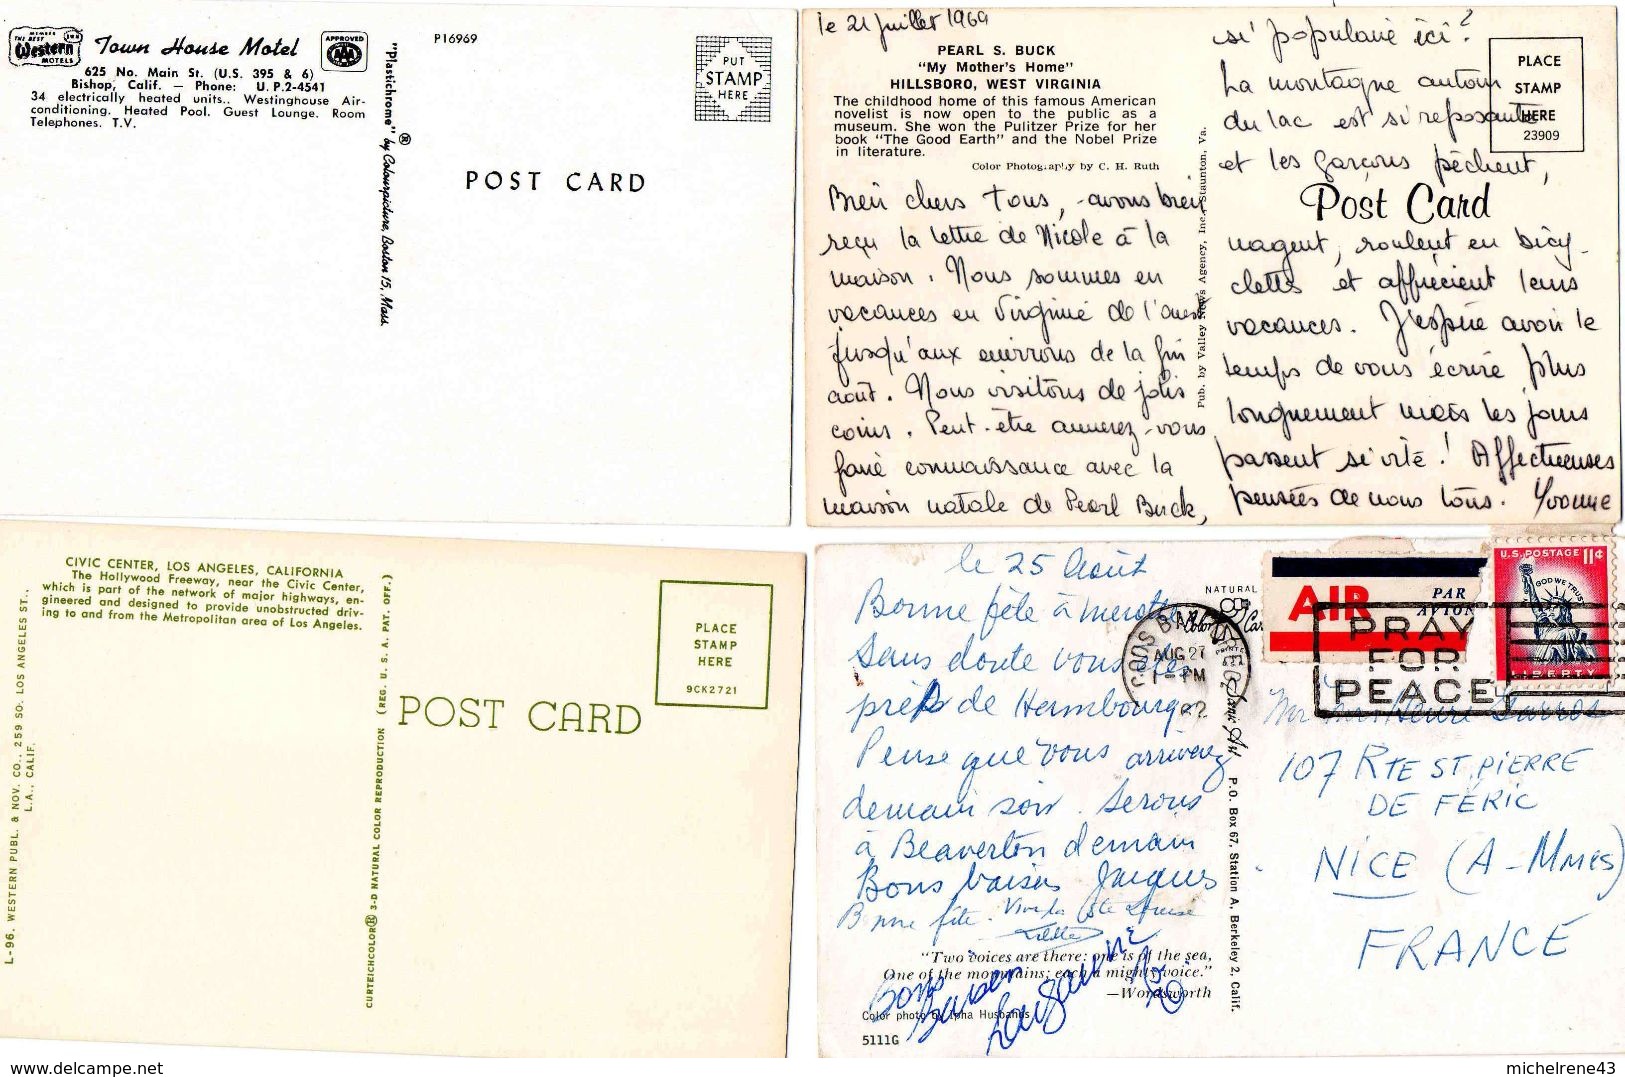 MEMBER
THE BEST
Western
MOTELS
Town House Motel
APPROVED
AAA
625 No. Main St. (U.S. 395 & 6)
Bishop, Calif. — Phone: U. P.2-4541
34 electrically heated units.. Westinghouse Air-
conditioning. Heated Pool. Guest Lounge. Room
Telephones. T.V.
"Plastichrome" ® by Colourpicture, Boston 15, Mass.
P16969
PUT
STAMP
HERE
POST CARD
le 21 juillet 1969
PEARL S. BUCK
"My Mother's Home"
HILLSBORO, WEST VIRGINIA
The childhood home of this famous American
novelist is now open to the public as a
museum. She won the Pulitzer Prize for her
book "The Good Earth" and the Nobel Prize
in literature.
Color Photography by C. H. Ruth
Bien chers Tous, avons bien
reçu la lettre de Nicole à la
maison. Nous sommes en
vacances en Virginie de l'ouest
jusqu'aux environs de la fin
août. Nous visitons de jolis
coins. Peut-être aimerez-vous
faire connaissance avec la
maison natale de Pearl Buck,
Pub. by Valley News Agency, Inc., Staunton, Va.
si populaire ici?
La montagne autour
du lac est si reposante
et les garçons pêchent,
PLACE
STAMP
HERE
23909
Post Card
nagent, roulent en bicy-
clettes et apprécient leurs
vacances. J'espère avoir le
temps de vous écrire plus
longuement mais les jours
passent si vite! Affectueuses
pensées de nous tous. Yvonne
CIVIC CENTER, LOS ANGELES, CALIFORNIA
The Hollywood Freeway, near the Civic Center,
which is part of the network of major highways, en-
gineered and designed to provide unobstructed driv-
ing to and from the Metropolitan area of Los Angeles.
L-96. WESTERN PUBL. & NOV. CO., 259 SO. LOS ANGELES ST.,
L.A., CALIF.
CURTEICHCOLOR® 3-D NATURAL COLOR REPRODUCTION (REG. U. S. A. PAT. OFF.)
PLACE
STAMP
HERE
9CK2721
POST CARD
le 25 Août
Bonne fête à
Sans doute vous êtes
près de
Pense que vous arriverez
demain soir. Serons
à Beaverton demain
Bons baisers Jacques
Bonne fête.
"Two voices are there: one is of the sea,
One of the mountains; each a mighty voice."
—Wordsworth
Bons
Baisers
Color photo by Ipha Husbands
5111G
NATURAL
Color Card
AUG 27
1 - PM
P.O. Box 67, Station A, Berkeley 2, Calif.
AIR
PAR
AVION
PRAY
FOR
PEACE
U.S. POSTAGE 11¢
IN GOD WE TRUST
LIBERTY
107 RTE ST. PIERRE
DE FÉRIC
NICE (A-Mmes)
FRANCE
www.delcampe.net
michelrene43